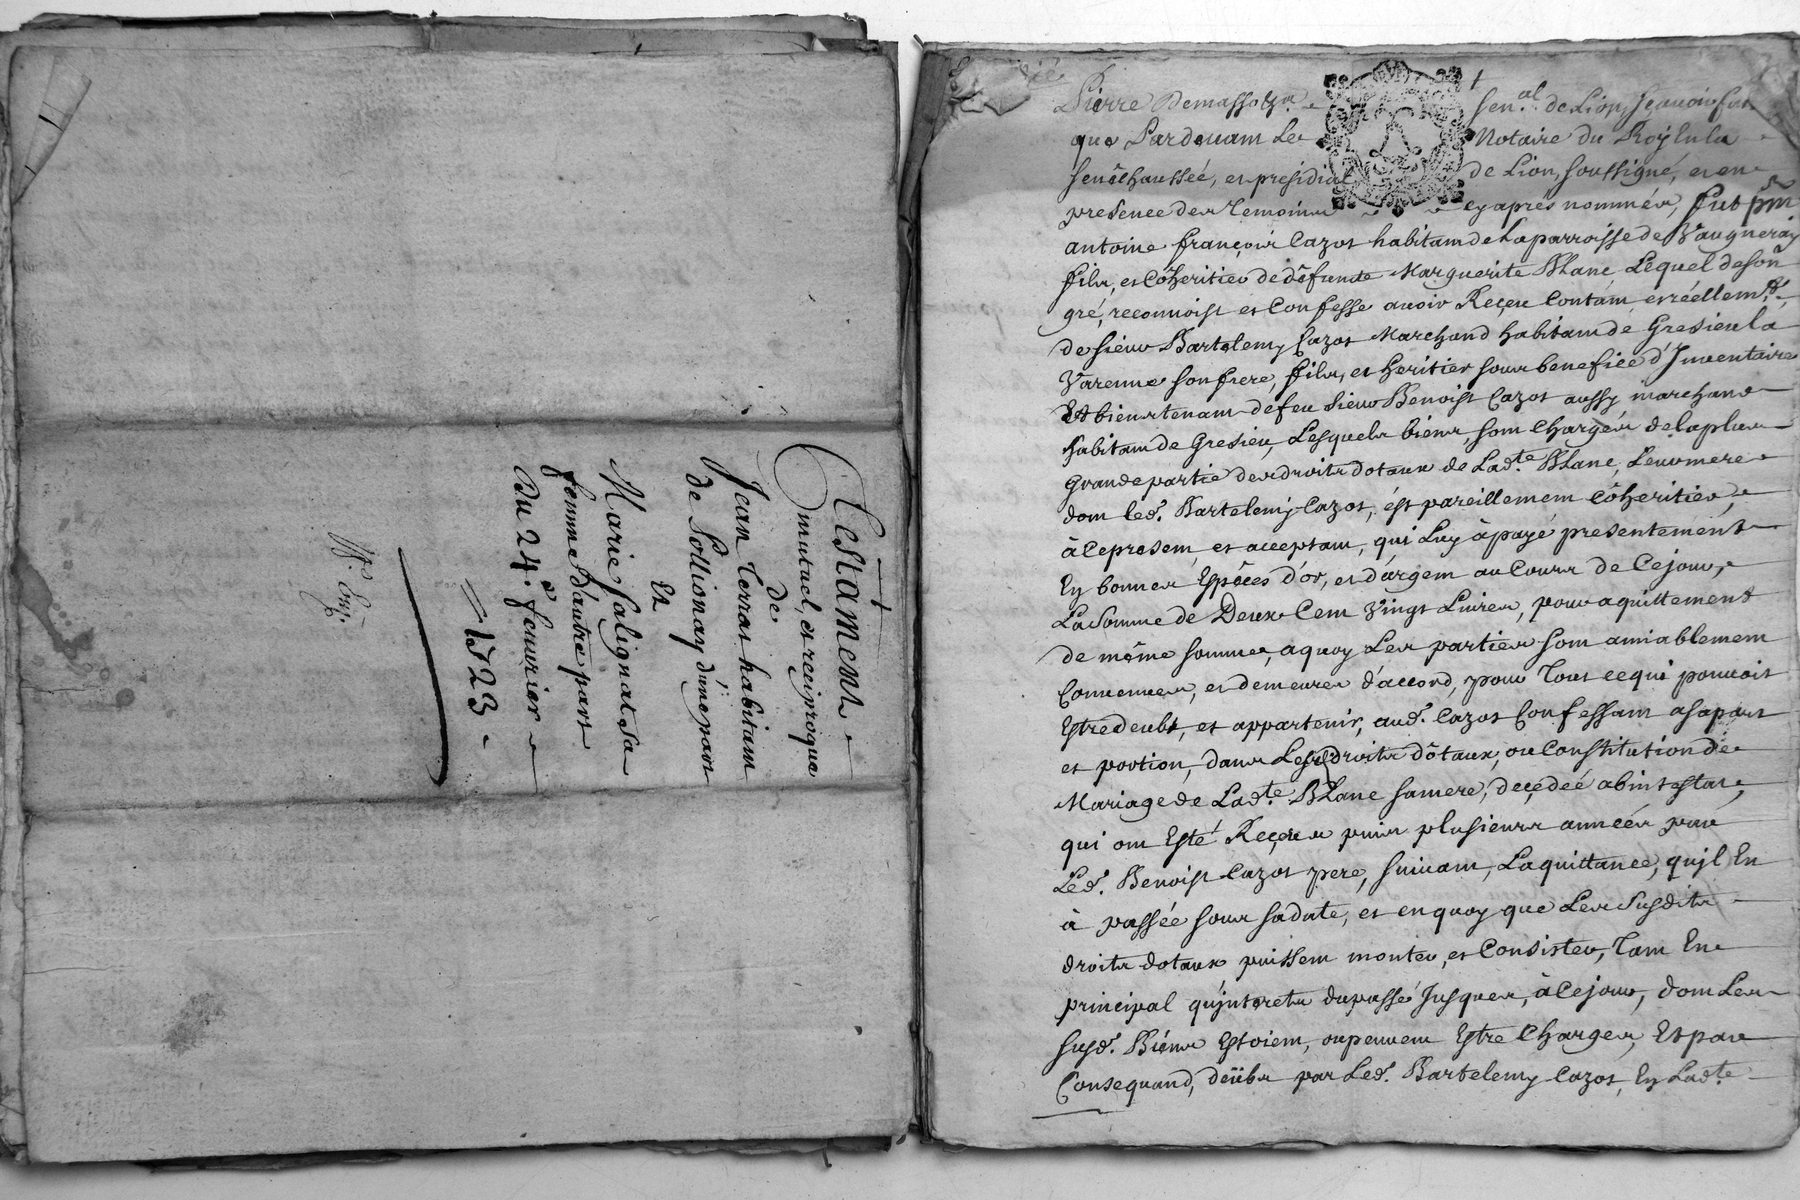 Testament
mutuel, et reciproque
de
Jean Terras habitant
de Pollionay d'une part
Et
Marie Salignat sa
femme d'autre part
Du 24.e feuvrier
1723
Pierre Demasso sen.al de Lion, scavoir fai
que Pardeuant Le Notaire du Roy en la
senêchaussée, et presidial de Lion, soussigné, et en
presence des Temoins cy aprés nommés, fut pnt
antoine françois Cazot habitant de La parroisse de Vaugneray
fils, et Côheritier de défunte Marguerite Blanc Lequel de son
gré, reconnoist et Confesse auoir Reçeu Contant et réellem.t
de sieur Bartelemy Cazot Marchand habitant de Gresieu la
Varenne son frere, fils, et heritier sous benefice d'Inuentaire
Et bien tenant de feu sieur Benoist Cazot aussy marchand
habitant de Gresieu, Lesquels biens, sont Chargés de la plus
Grande partie des droits dotaux de Lad.te Blanc, Leur mere
dont led. Bartelemy Cazot, ést pareillement Côheritier,
à Ce present, et acceptant, qui Luy à payé presentement
En bonnes Espêces d'or, et d'argent au Cours de Ce jour,
La somme de Deux Cent Vingt Liures, pour aquittement
de même somme, a quoy Les parties sont amiablement
Conuenues, et demeurés d'accord, pour Tout ce qui pouuoit
Estre deubt, et appartenir, aud. Cazot Confessant a sa part
et portion, dans Lesd droits dôtaux, ou Constitution de
Mariage de Lad.te Blanc sa mere, deçedeé abintestat,
qui ont Esté Reçeus puis plusieurs années par
Led. Benoist Cazot pere, suiuant, La quittance, qu'jl En
à passée sous sa date, et en quoy que Les susdits
droits dotaux puissent monter, et Consister, Tant En
principal qu'jnterets du passé Jusques, à Ce jour, dont Les
susd. Biens Estoient, ou peuuent Estre Charges, Et par
Consequand, deübs par Led. Bartelemy Cazot, En Lad.te